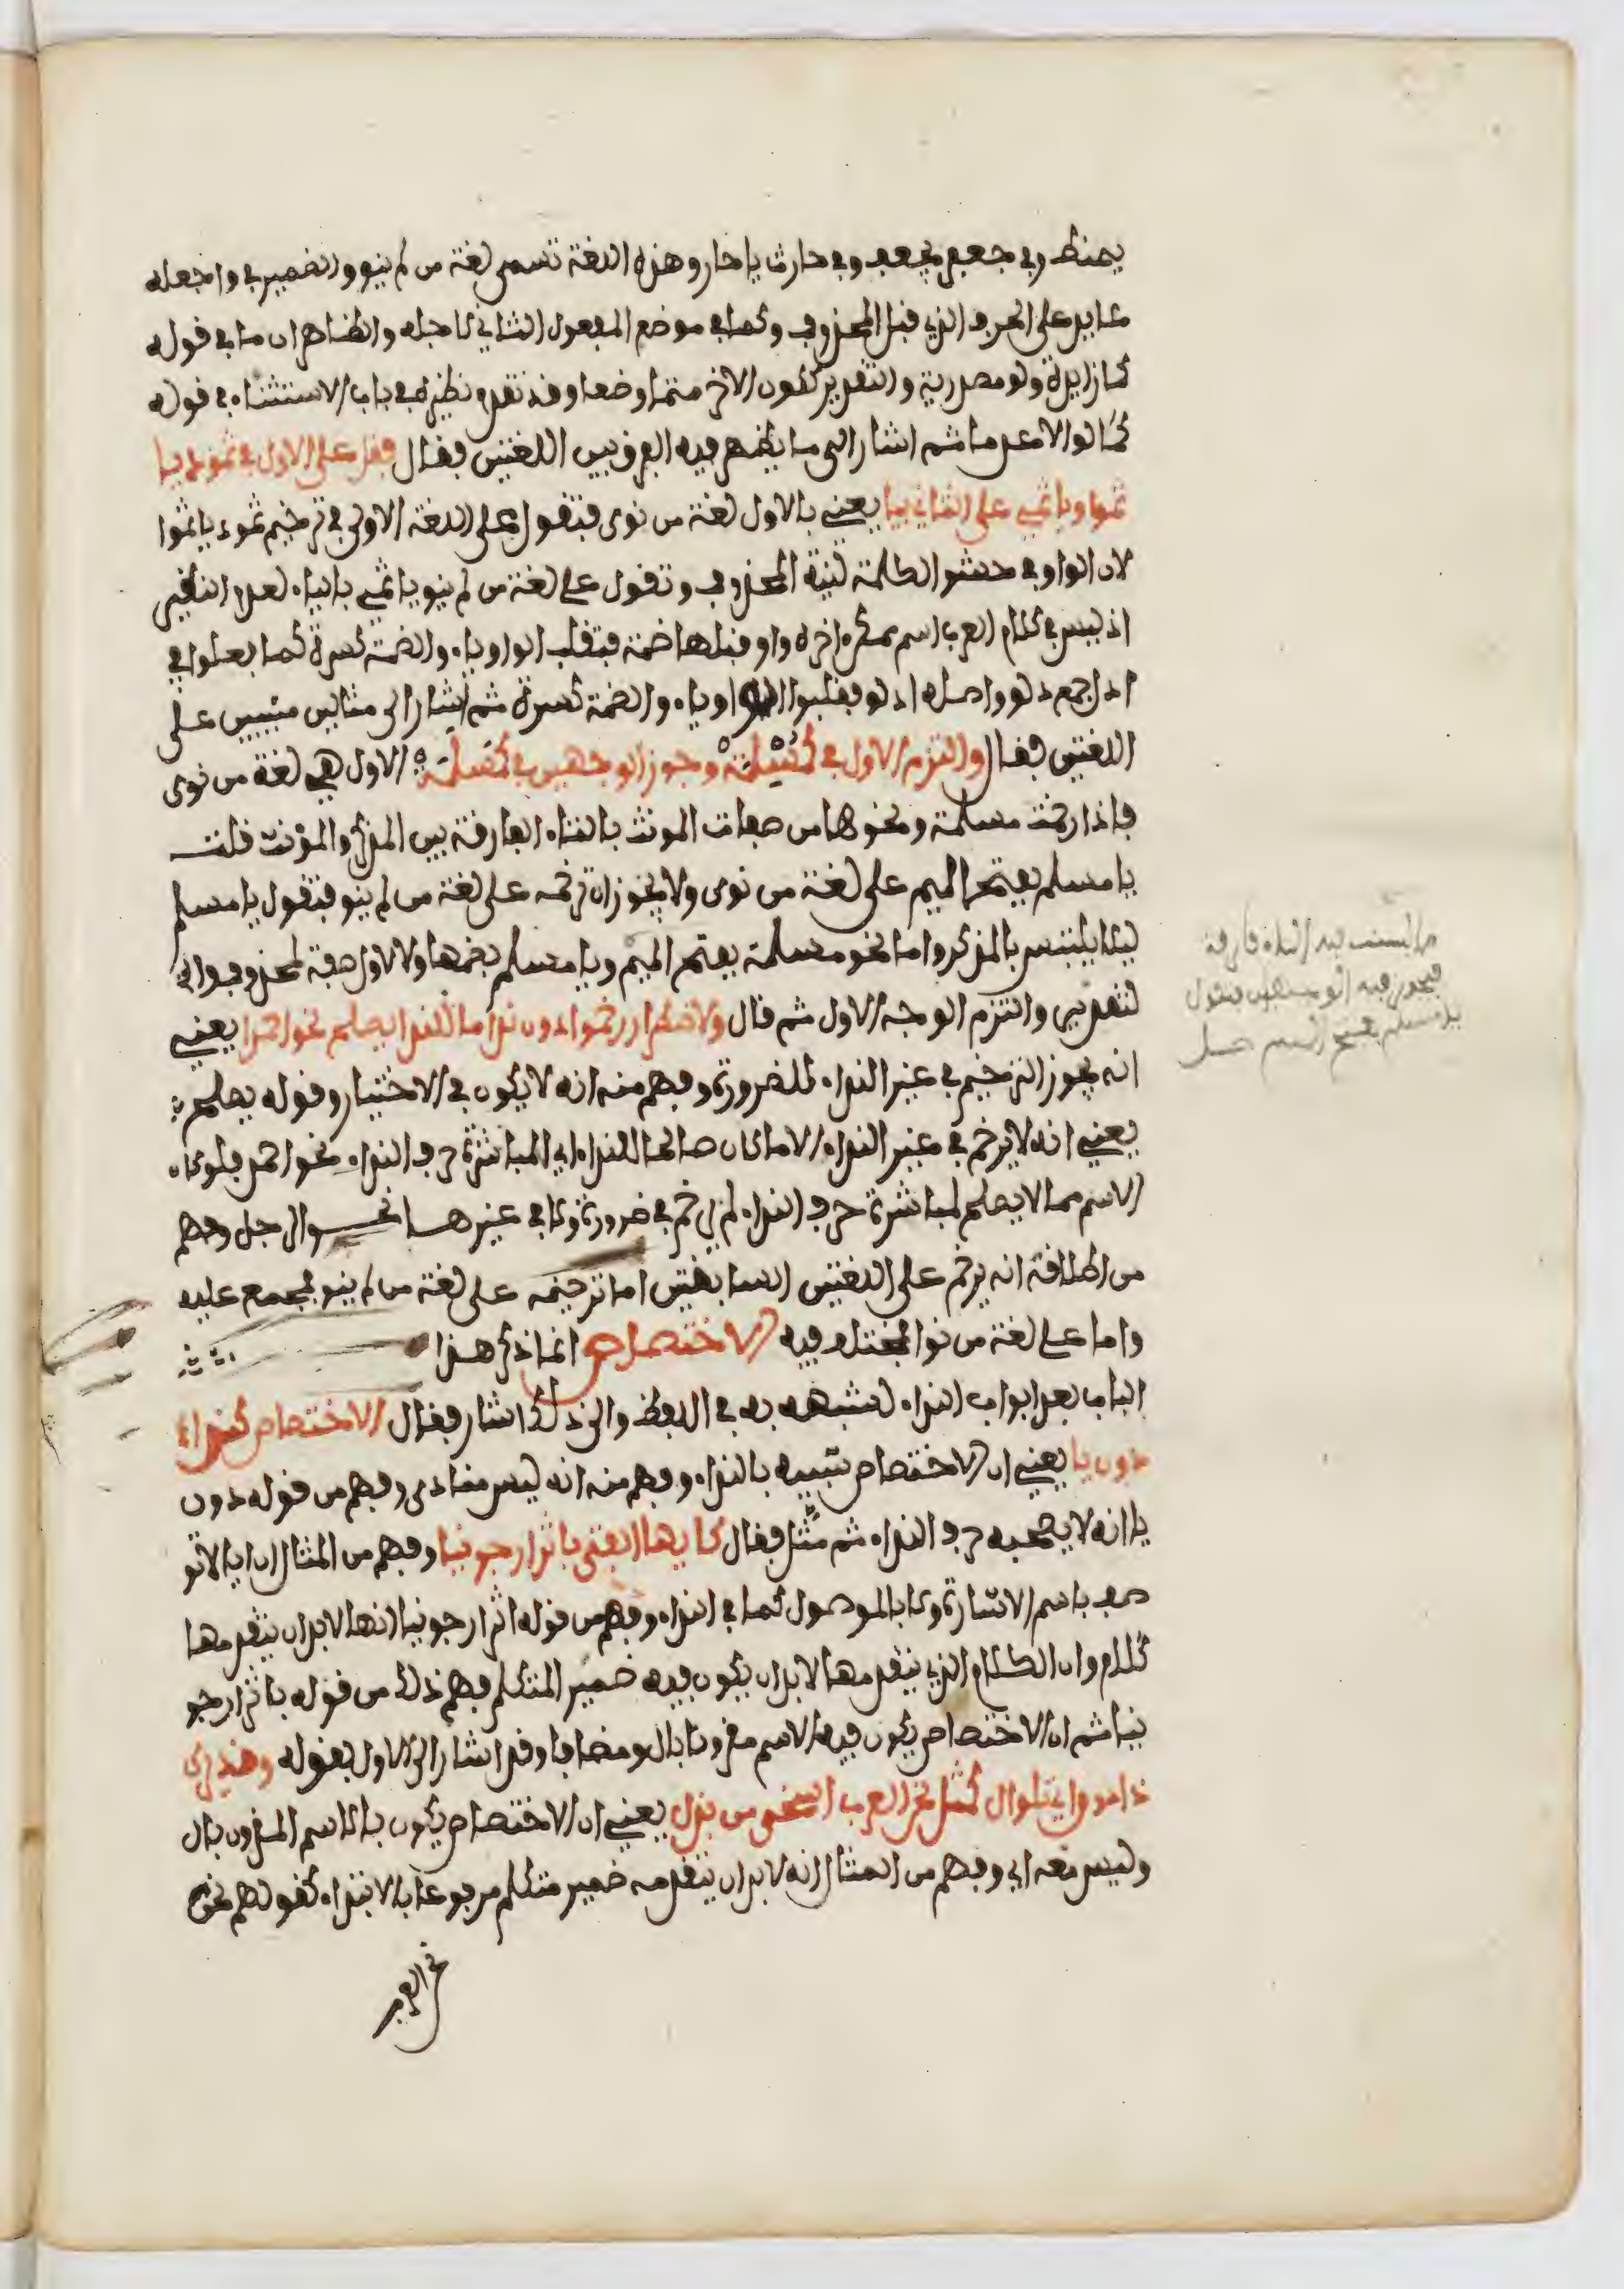 يا قمط وفي جعفر يا جعف وفي حارث يا حار وهذه اللغة تسمى لغة من لم ينو والضمير في واجعله
عايد على الحرف الذي قبل المحذوف وكما في موضع المفعول الثاني لاجعله والظاهر ان ما في قوله
كما زايدة ولو مصدرية والتقدير ككون الاخر متمما وضعا وقد تقدم نظيره في باب الاستثناء في قوله
كما لو الا عدما ثم اشار الى ما يظهر فيه الفرق بين اللغتين فقال فقل على الاول في ثمود يا
ثموا ويا ثمي على الثاني بيا يعني بالاول لغة من نوى فتقول على اللغة الاولى في ترخيم ثمود يا ثموا
لان الواو في حشو الكلمة لنية المحذوف وتقول على لغة من لم ينو يا ثمي بالياء لعدم النظير
اذ ليس في كلام العرب اسم متمكن اخره واو قبلها ضمة فتقلب الواو ياء والضمة كسرة كما فعلوا في
ادل جمع دلو واصله ادلو فقلبوا الواو ياء والضمة كسرة ثم اشار الى مثالين مبنيين على
اللغتين فقال والتزم الاول في كمسلمة وجوز الوجهين في كمسلمة الاول هي لغة من نوى
فاذا رخمت مسلمة ونحوها من صفات المونث بالتاء الفارقة بين المذكر والمؤنث قلت
يا مسلم بفتح الميم على لغة من نوى ولا يجوز ان ترخمه على لغة من لم ينو فتقول يا مسلم
ليلا يلتبس بالمذكر واما نحو مسلمة بفتح الميم ويا مسلم بضمها والاول صفة لمحذوف وانى
لتقديرى والتزم الوجه الاول ثم قال ولاضطرار رخموا دون ندا ما للندا يصلح نحو احمدا يعني
انه يجوز الترخيم في غير النداء للضرورة وفهم منه انه لا يكون في الاختيار وقوله يصلح
يعني انه لا يرخم في غير النداء الا ما كان صالحا للنداء اي لمباشرة حرف النداء نحو احمد فلو كان
الاسم مما لا يصلح لمباشرة حرف النداء لم يرخم في ضرورة ولا في غيرها نحو الرجل وفهم
من اطلاقه انه يرخم على اللغتين السابقتين اما ترخيمه على لغة من لم ينو فمجمع عليه
واما على لغة من نوا فمختلف فيه الاختصاص انما ذكر هذا
الباب بعد ابواب النداء لشبهه به في اللفظ والى ذلك اشار فقال الاختصاص كنداء
دون يا يعني ان الاختصاص شبيه بالنداء وفهم منه انه ليس منادى وفهم من قوله دون
يا انه لا يصحبه حرف النداء ثم مثل فقال كايها الفتى باثر ارجونيا وفهم من المثال ان ايا لا تو
صف باسم الاشارة ولا بالموصول كما في النداء وفهم من قوله اثر ارجونيا انها لا بد ان يتقدمها
كلام وان الكلام الذي يتقدمها لا بد ان يكون فيه ضمير المتكلم فهم ذلك من قوله باثر ارجو
نيا ثم ان الاختصاص يكون فيه الاسم مقرونا بال ومضافا وقد اشار الى الاول بقوله وقد يرى
ذا دون اي تلو ال كمثل نحن العرب اسخى من بذل يعني ان الاختصاص يكون بالاسم المقرون بال
وليس معه اي وفهم من المثال انه لا بد ان يتقدمه ضمير متكلم مرفوعا بالابتداء كقولهم نحن
نحن العر
ما ليست فيه التاء فارقة
فيجوز فيه الوجهين فتقول
يا مسلم بفتح الميم